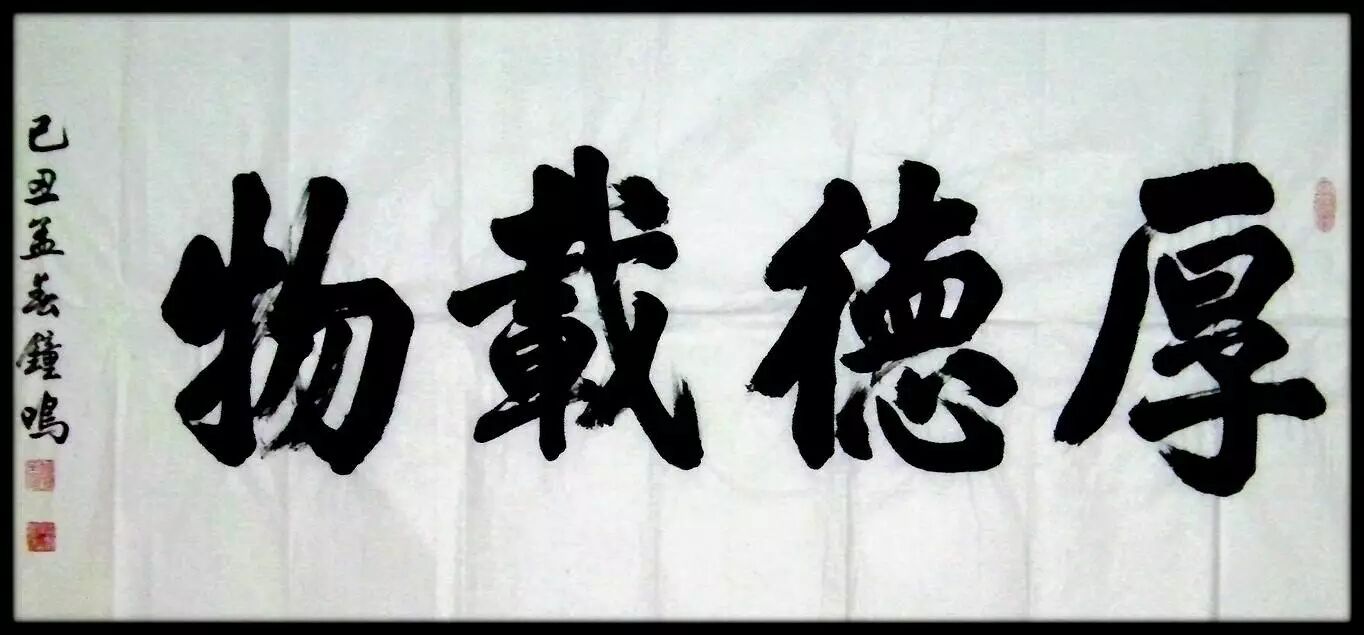 厚德載物
己丑孟春鐘鳴